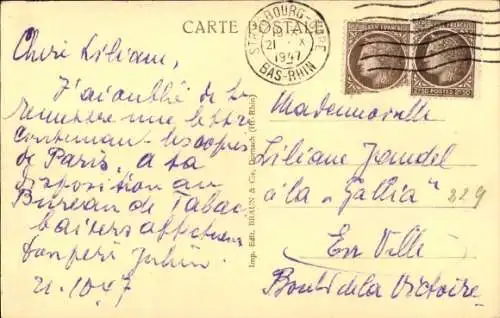 CARTE POSTALE
STRASBOURG GARE
21 X
1947
BAS-RHIN
Chère Liliane,
J'ai oublié de te
remettre une lettre
contenan
de Paris, à ta
disposition au
Bureau de Tabac
baisers affectueux
ton père
21.10.47
Imp. Edit. BRAUN & Cie, Dornach (Ht-Rhin)
POSTES
2f50
2f50
Mademoiselle
Liliane
à la "Gallia"
229
En Ville
Boul. de la Victoire